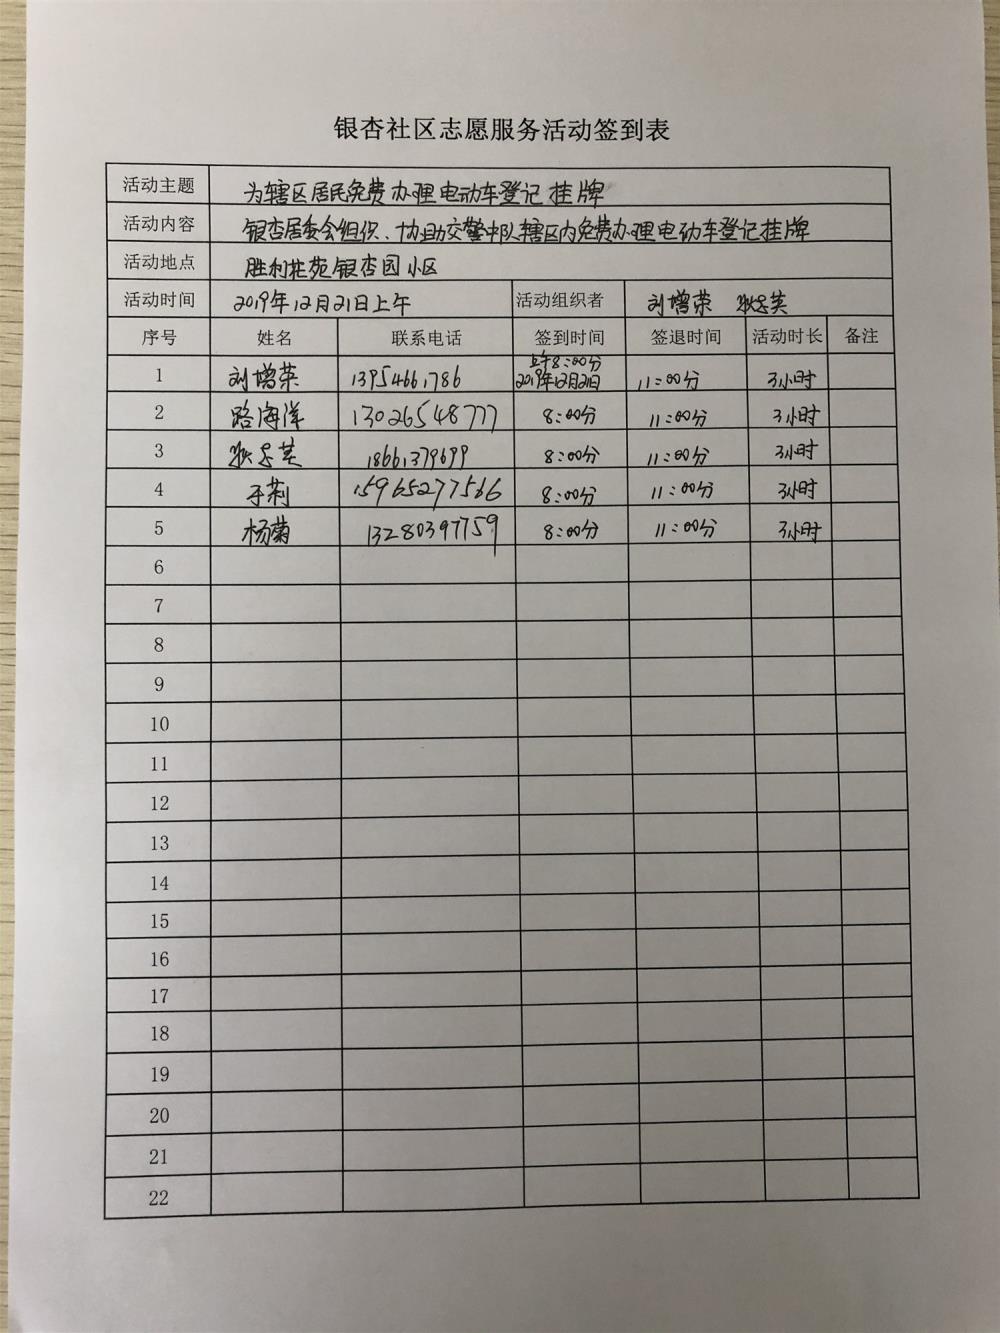 银杏社区志愿服务活动签到表
活动主题 为辖区居民免费办理电动车登记挂牌
活动内容 银杏居委会组织、协助交警中队辖区内免费办理电动车登记挂牌
活动地点 胜利花苑银杏园小区
活动时间 2019年12月21日上午 活动组织者 刘增荣
序号 姓名 联系电话 签到时间 签退时间 活动时长 备注
1 刘增荣 13954661786 2019年12月21日上午8:00分 11:00分 3小时
2 路海洋 13026548777 8:00分 11:00分 3小时
3 18661379699 8:00分 11:00分 3小时
4 于莉 15965277566 8:00分 11:00分 3小时
5 杨菊 13280397759 8:00分 11:00分 3小时
6
7
8
9
10
11
12
13
14
15
16
17
18
19
20
21
22